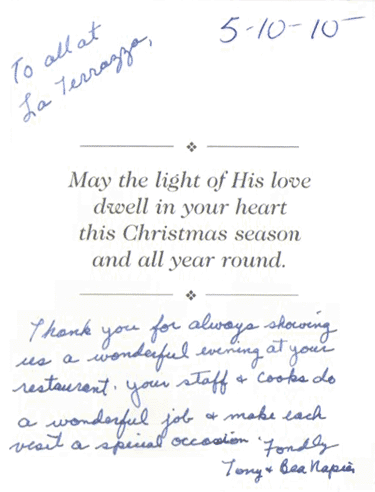 To all at
La Terrazza,
5-10-10-
May the light of His love
dwell in your heart
this Christmas season
and all year round.
Thank you for always showing
us a wonderful evening at your
restaurant. your staff & cooks do
a wonderful job & make each
visit a special occasion. Fondly
Tony & Bea Napier